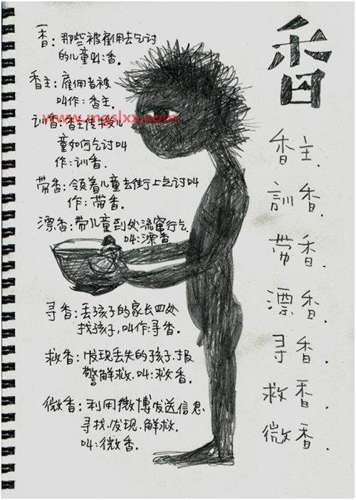 香：那些被雇用去乞讨
的儿童叫：香.
香主：雇佣者被
叫作：香主.
童如何乞讨叫
作：訓香.
带香：领着儿童去街上乞讨叫
作：带香.
漂香：带儿童到处流窜行乞
叫：漂香
寻香：丢孩子的家长四处
找孩子，叫作：寻香.
救香：发现丢失的孩子，报
警解救，叫：救香.
微香：利用微博发送信息
寻找，发现，解救.
叫：微香.
香
香主.
訓香.
带香.
漂香.
寻香.
救香.
微香.